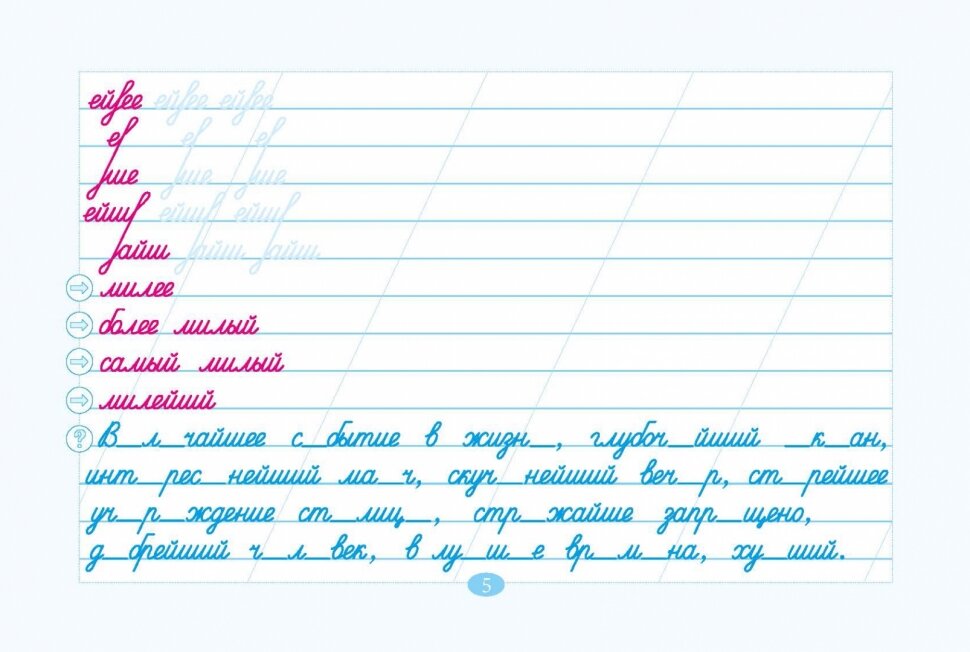 ейвее ейвее ейвее
ев ев ев
ше ше ше
ейшв ейшв ейшв
айш айш айш
милее
более милый
самый милый
милейший
? В_л_чайшее с_бытие в жизн_, глубоч_йший _к_ан,
инт_рес_нейший ма_ч, скуч_нейший веч_р, ст_рейшее
уч_р_ждение ст_лиц_, стр_жайше запр_щено,
д_брейший ч_л_век, в лу_ш_е вр_м_на, ху_ший.
5